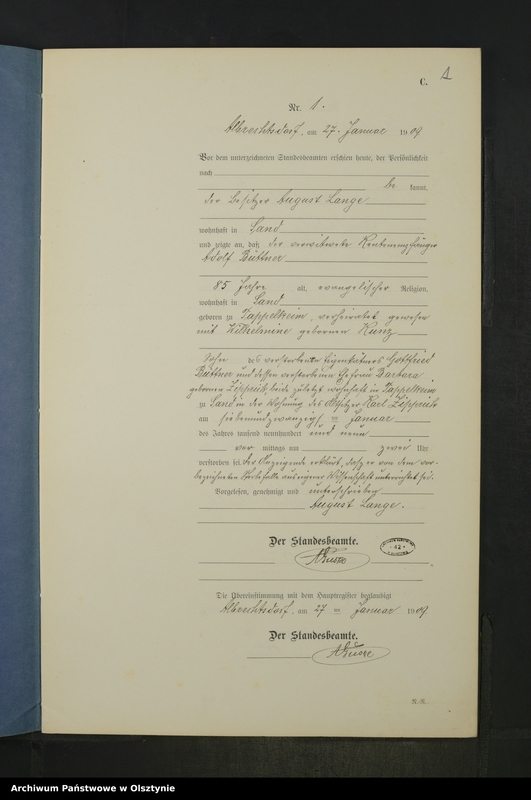 C.
1
Nr. 1.
Albrechtsdorf, am 27. Januar 1909
Vor dem unterzeichneten Standesbeamten erschien heute, der Persönlichkeit
nach
be kannt,
der Besitzer August Lange
wohnhaft in Sand
und zeigte an, daß der verwitwete Rentenempfänger
Adolf Büttner
85 Jahre alt, evangelischer Religion,
wohnhaft in Sand
geboren zu Tappelkeim, verheiratet gewesen
mit Wilhelmine geborenen Kunz
Sohn des verstorbenen Eigenkätners Gottfried
Büttner und dessen verstorbenen Ehefrau Barbara
geborenen beide zuletzt wohnhaft in Tappelkeim
zu Sand in der Wohnung des Besitzer Karl
am siebenundzwanzigsten Januar
des Jahres tausend neunhundert und neun
vor mittags um zwei Uhr
verstorben sei. Der Anzeigende erklärt, dasz er von dem vor-
bezeichneten Sterbefalle aus eigener Wissenschaft unterrichtet sei.
Vorgelesen, genehmigt und unterschrieben
August Lange.
Der Standesbeamte.
42
Die Übereinstimmung mit dem Hauptregister beglaubigt
Albrechtsdorf, am 27 ten Januar 1909
Der Standesbeamte.
Archiwum Państwowe w Olsztynie